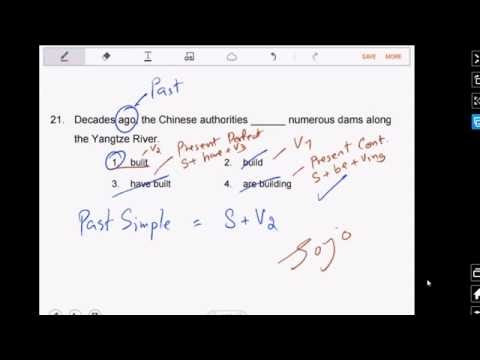 SAVE MORE
Past
21. Decades ago, the Chinese authorities ______ numerous dams along
the Yangtze River.
V2 Present Perfect
S + have + V3
1. built 2. build V1
Present Cont.
S + be + Ving
3. have built 4. are building
Past Simple = S + V2
Sojo